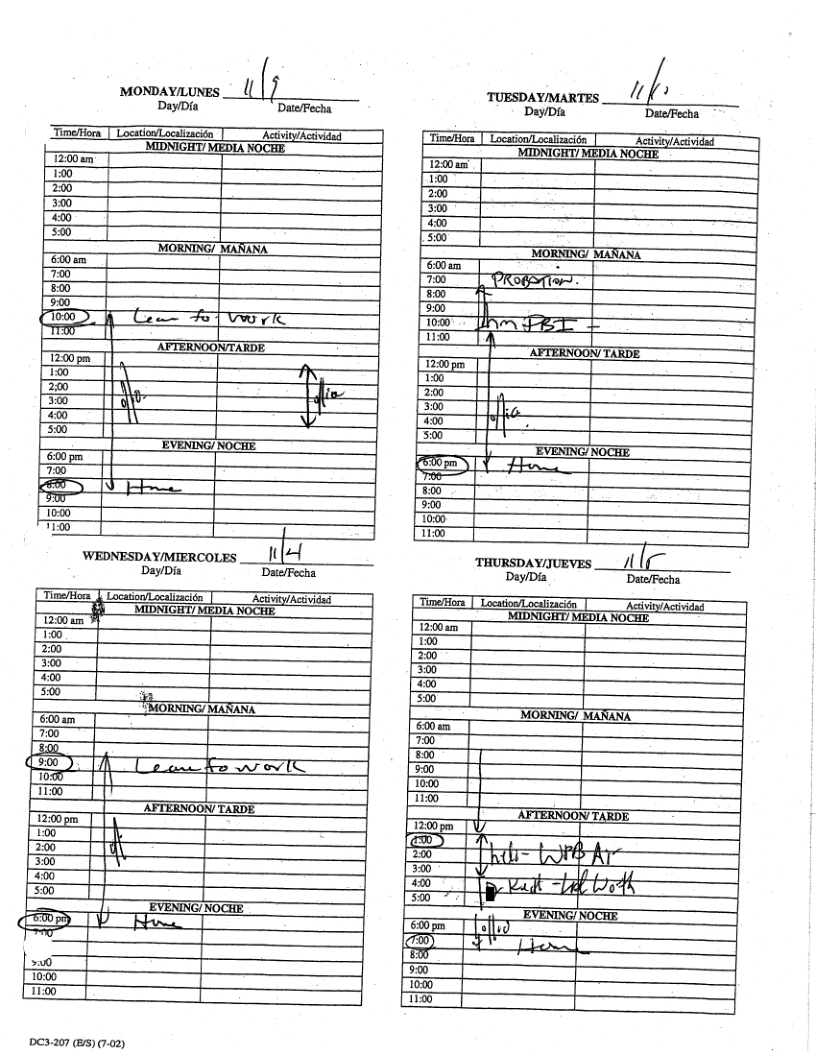 MONDAY/LUNES 11/9
Day/Día Date/Fecha
Time/Hora Location/Localización Activity/Actividad
MIDNIGHT/ MEDIA NOCHE
12:00 am
1:00
2:00
3:00
4:00
5:00
MORNING/ MAÑANA
6:00 am
7:00
8:00
9:00
10:00 Leave to work
11:00
AFTERNOON/TARDE
12:00 pm
1:00
2:00
3:00
4:00
5:00
EVENING/ NOCHE
6:00 pm
7:00
8:00 Home
9:00
10:00
11:00
TUESDAY/MARTES 11/10
Day/Día Date/Fecha
Time/Hora Location/Localización Activity/Actividad
MIDNIGHT/ MEDIA NOCHE
12:00 am
1:00
2:00
3:00
4:00
5:00
MORNING/ MAÑANA
6:00 am
7:00 PROBATION.
8:00
9:00
10:00
11:00
AFTERNOON/ TARDE
12:00 pm
1:00
2:00
3:00
4:00
5:00
EVENING/ NOCHE
6:00 pm Home
7:00
8:00
9:00
10:00
11:00
WEDNESDAY/MIERCOLES 11/4
Day/Día Date/Fecha
Time/Hora Location/Localización Activity/Actividad
MIDNIGHT/ MEDIA NOCHE
12:00 am
1:00
2:00
3:00
4:00
5:00
MORNING/ MAÑANA
6:00 am
7:00
8:00
9:00 Leave to work
10:00
11:00
AFTERNOON/ TARDE
12:00 pm
1:00
2:00
3:00
4:00
5:00
EVENING/ NOCHE
6:00 pm Home
7:00
9:00
10:00
11:00
THURSDAY/JUEVES 11/5
Day/Día Date/Fecha
Time/Hora Location/Localización Activity/Actividad
MIDNIGHT/ MEDIA NOCHE
12:00 am
1:00
2:00
3:00
4:00
5:00
MORNING/ MAÑANA
6:00 am
7:00
8:00
9:00
10:00
11:00
AFTERNOON/ TARDE
12:00 pm
1:00
2:00 WPB
3:00
4:00 Worth
5:00
EVENING/ NOCHE
6:00 pm
7:00 Home
8:00
9:00
10:00
11:00
DC3-207 (E/S) (7-02)